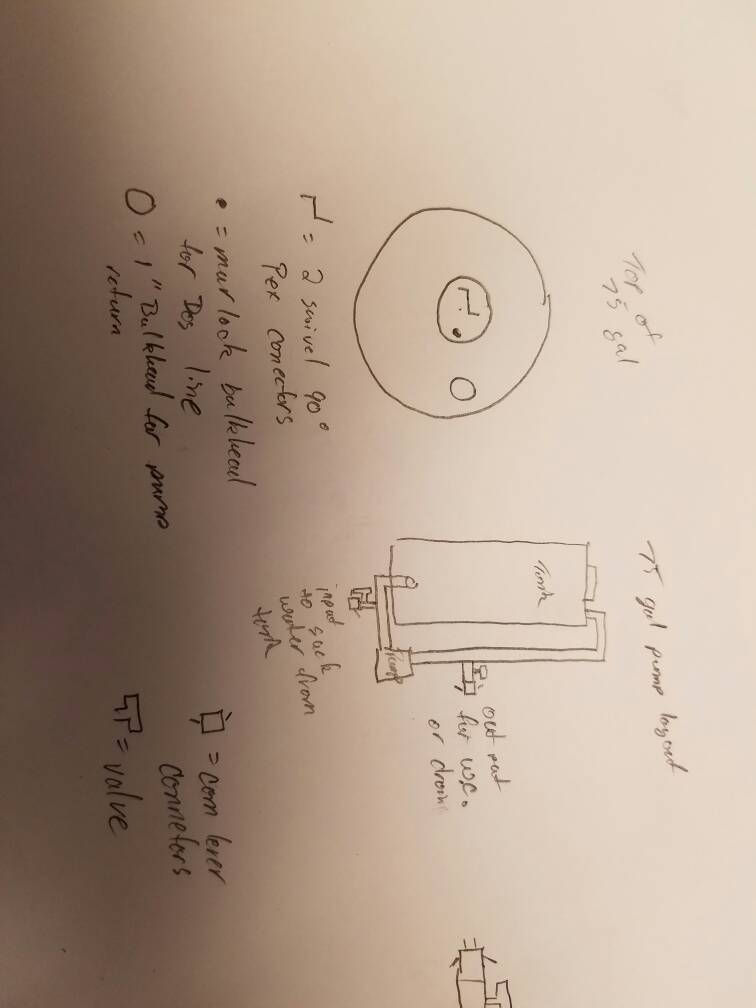 Top of
75 gal
= 2 swivel 90°
Pex conectors
= murlock bulkhead
for Dos line
= 1" Bulkhead for pump
return
75 gal pump layout
Tank
Pump
out put
for use
or drain
input
to suck
water from
tank
= cam lever
connetors
= valve